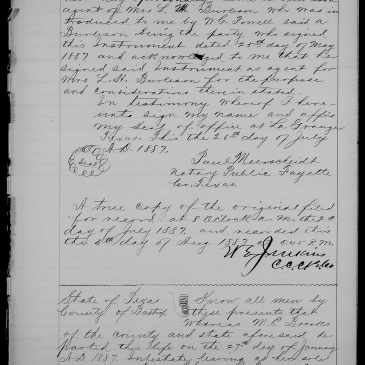 agent of Mrs L. H. Burleson who was in
troduced to me by W. C. Powell said A
Burleson being the party who signed
this Instrument dated 25th day of May
1887 and acknowledged to me that he
signed said Instrument as agent for
Mrs L. H. Burleson for the purposes
and considerations therein stated.
In testimony whereof I here-
unto sign my name and affix
my Seal of office at La Grange
Texas this the 28th day of July
A.D. 1887.
Paul Meerscheidt
Notary Public Fayette
Co. Texas
A true copy of the original filed
for record at 8 O'Clock A. M. the 2d
day of July 1887, and recorded this
the day of Aug 1887 at P.M.
W E Jenkins
State of Texas
County of Bastrop
Know all men by
these presents that
Whereas M. C.
of the county and state aforesaid de
parted this life on the 27th day of January
A D 1887. Intestate leaving as her sole